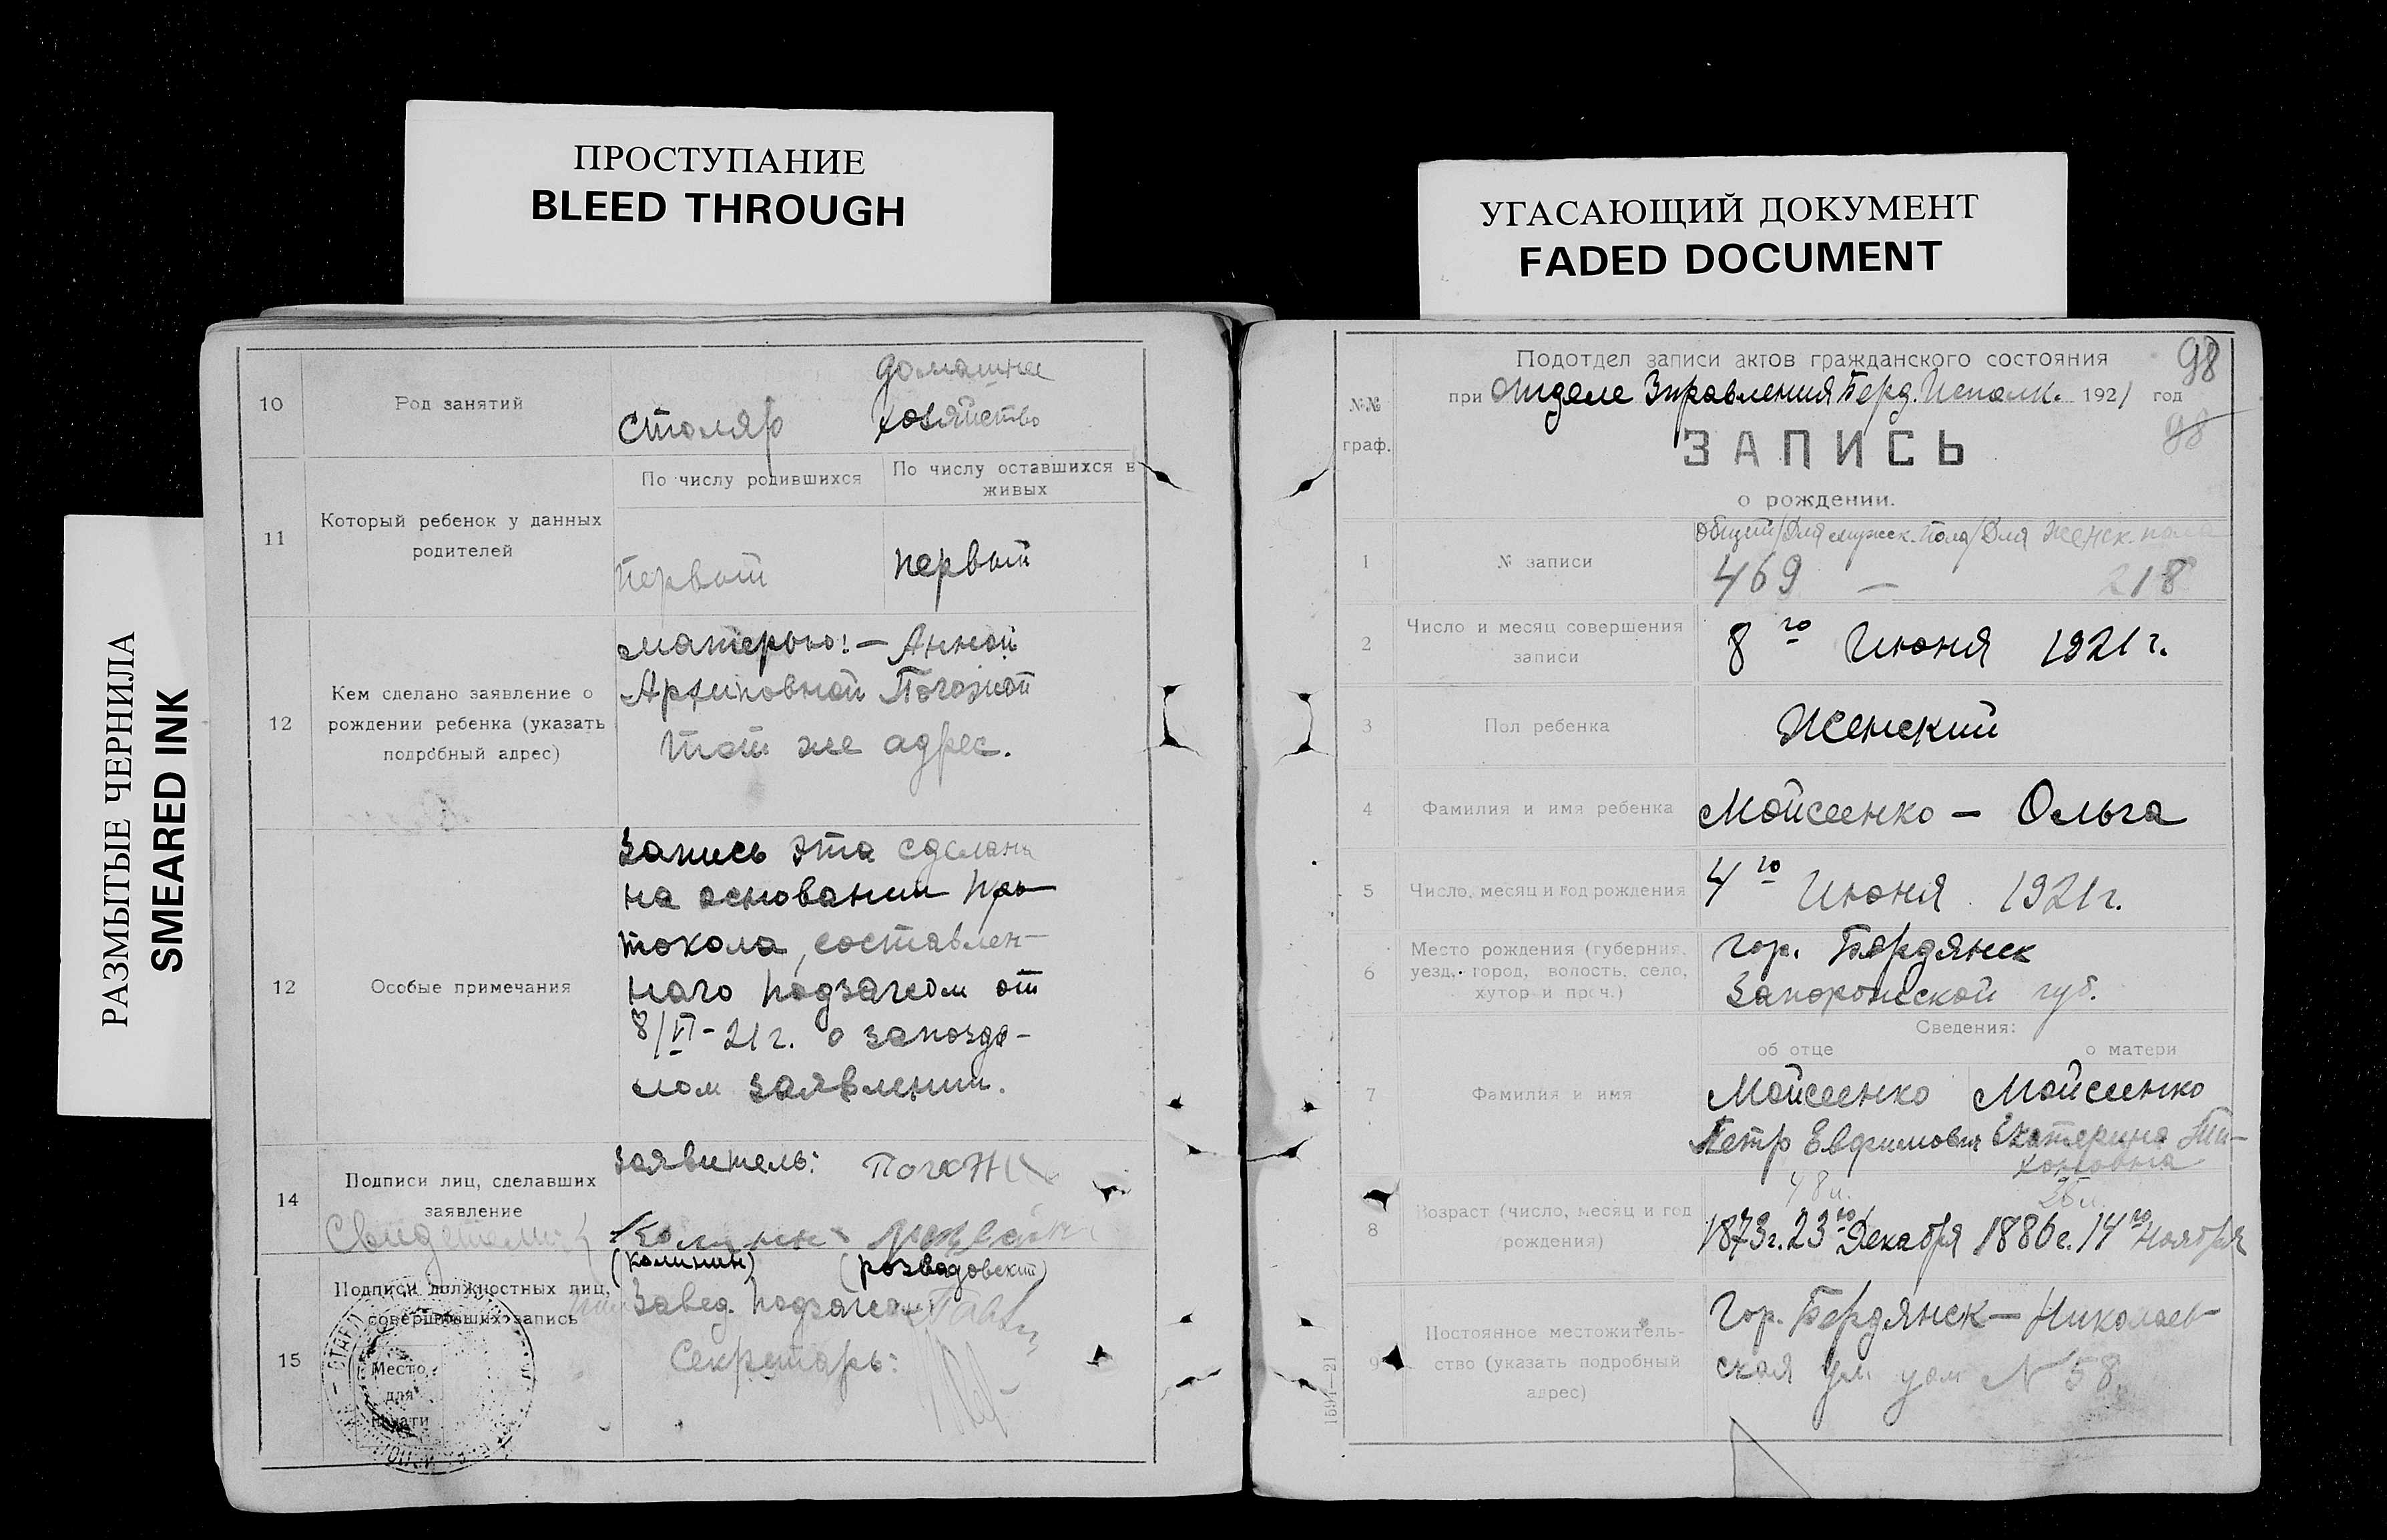 ПРОСТУПАНИЕ
BLEED THROUGH
УГАСАЮЩИЙ ДОКУМЕНТ
FADED DOCUMENT
РАЗМЫТЫЕ ЧЕРНИЛА
SMEARED INK
10
Род занятий
Столяр
домашнее
хозяйство
11
Который ребенок у данных
родителей
По числу родившихся
По числу оставшихся в
живых
первый
первый
12
Кем сделано заявление о
рождении ребенка (указать
подробный адрес)
матерью: — Анной
Погожой
тот же адрес.
12
Особые примечания
Запись эта сделана
на основании про-
токола, составлен-
ного подзагсом от
8/VI - 21 г. о запозда-
лом заявлении.
14
Подписи лиц, сделавших
заявление
Свидетели:
заявитель:
(Калинин)
(розвадовский)
15
Подписи должностных лиц,
совершивших запись
Место
для
печати
Завед. подзагсом
Секретарь:
98
98
№№
граф.
Подотдел записи актов гражданского состояния
при Отделе Управления Берд. Исполк. 1921 год
ЗАПИСЬ
о рождении.
1
№ записи
Общий/Для мужск. пола/Для женск. пола
469 — 218
2
Число и месяц совершения
записи
8го Июня 1921 г.
3
Пол ребенка
Женский
4
Фамилия и имя ребенка
Мойсеенко — Ольга
5
Число, месяц и год рождения
4го Июня 1921 г.
6
Место рождения (губерния,
уезд, город, волость, село,
хутор и проч.)
гор. Бердянск
Запорожской губ.
Сведения:
об отце
о матери
7
Фамилия и имя
Мойсеенко
Петр Евфимович
Мойсеенко
Екатерина Ти-
хоновна
8
Возраст (число, месяц и год
рождения)
48 л.
1873 г. 23го Декабря
1886 г. 14го Ноября
9
Постоянное местожитель-
ство (указать подробный
адрес)
Гор. Бердянск — Николаев-
ская ул. дом № 58.
1594—21